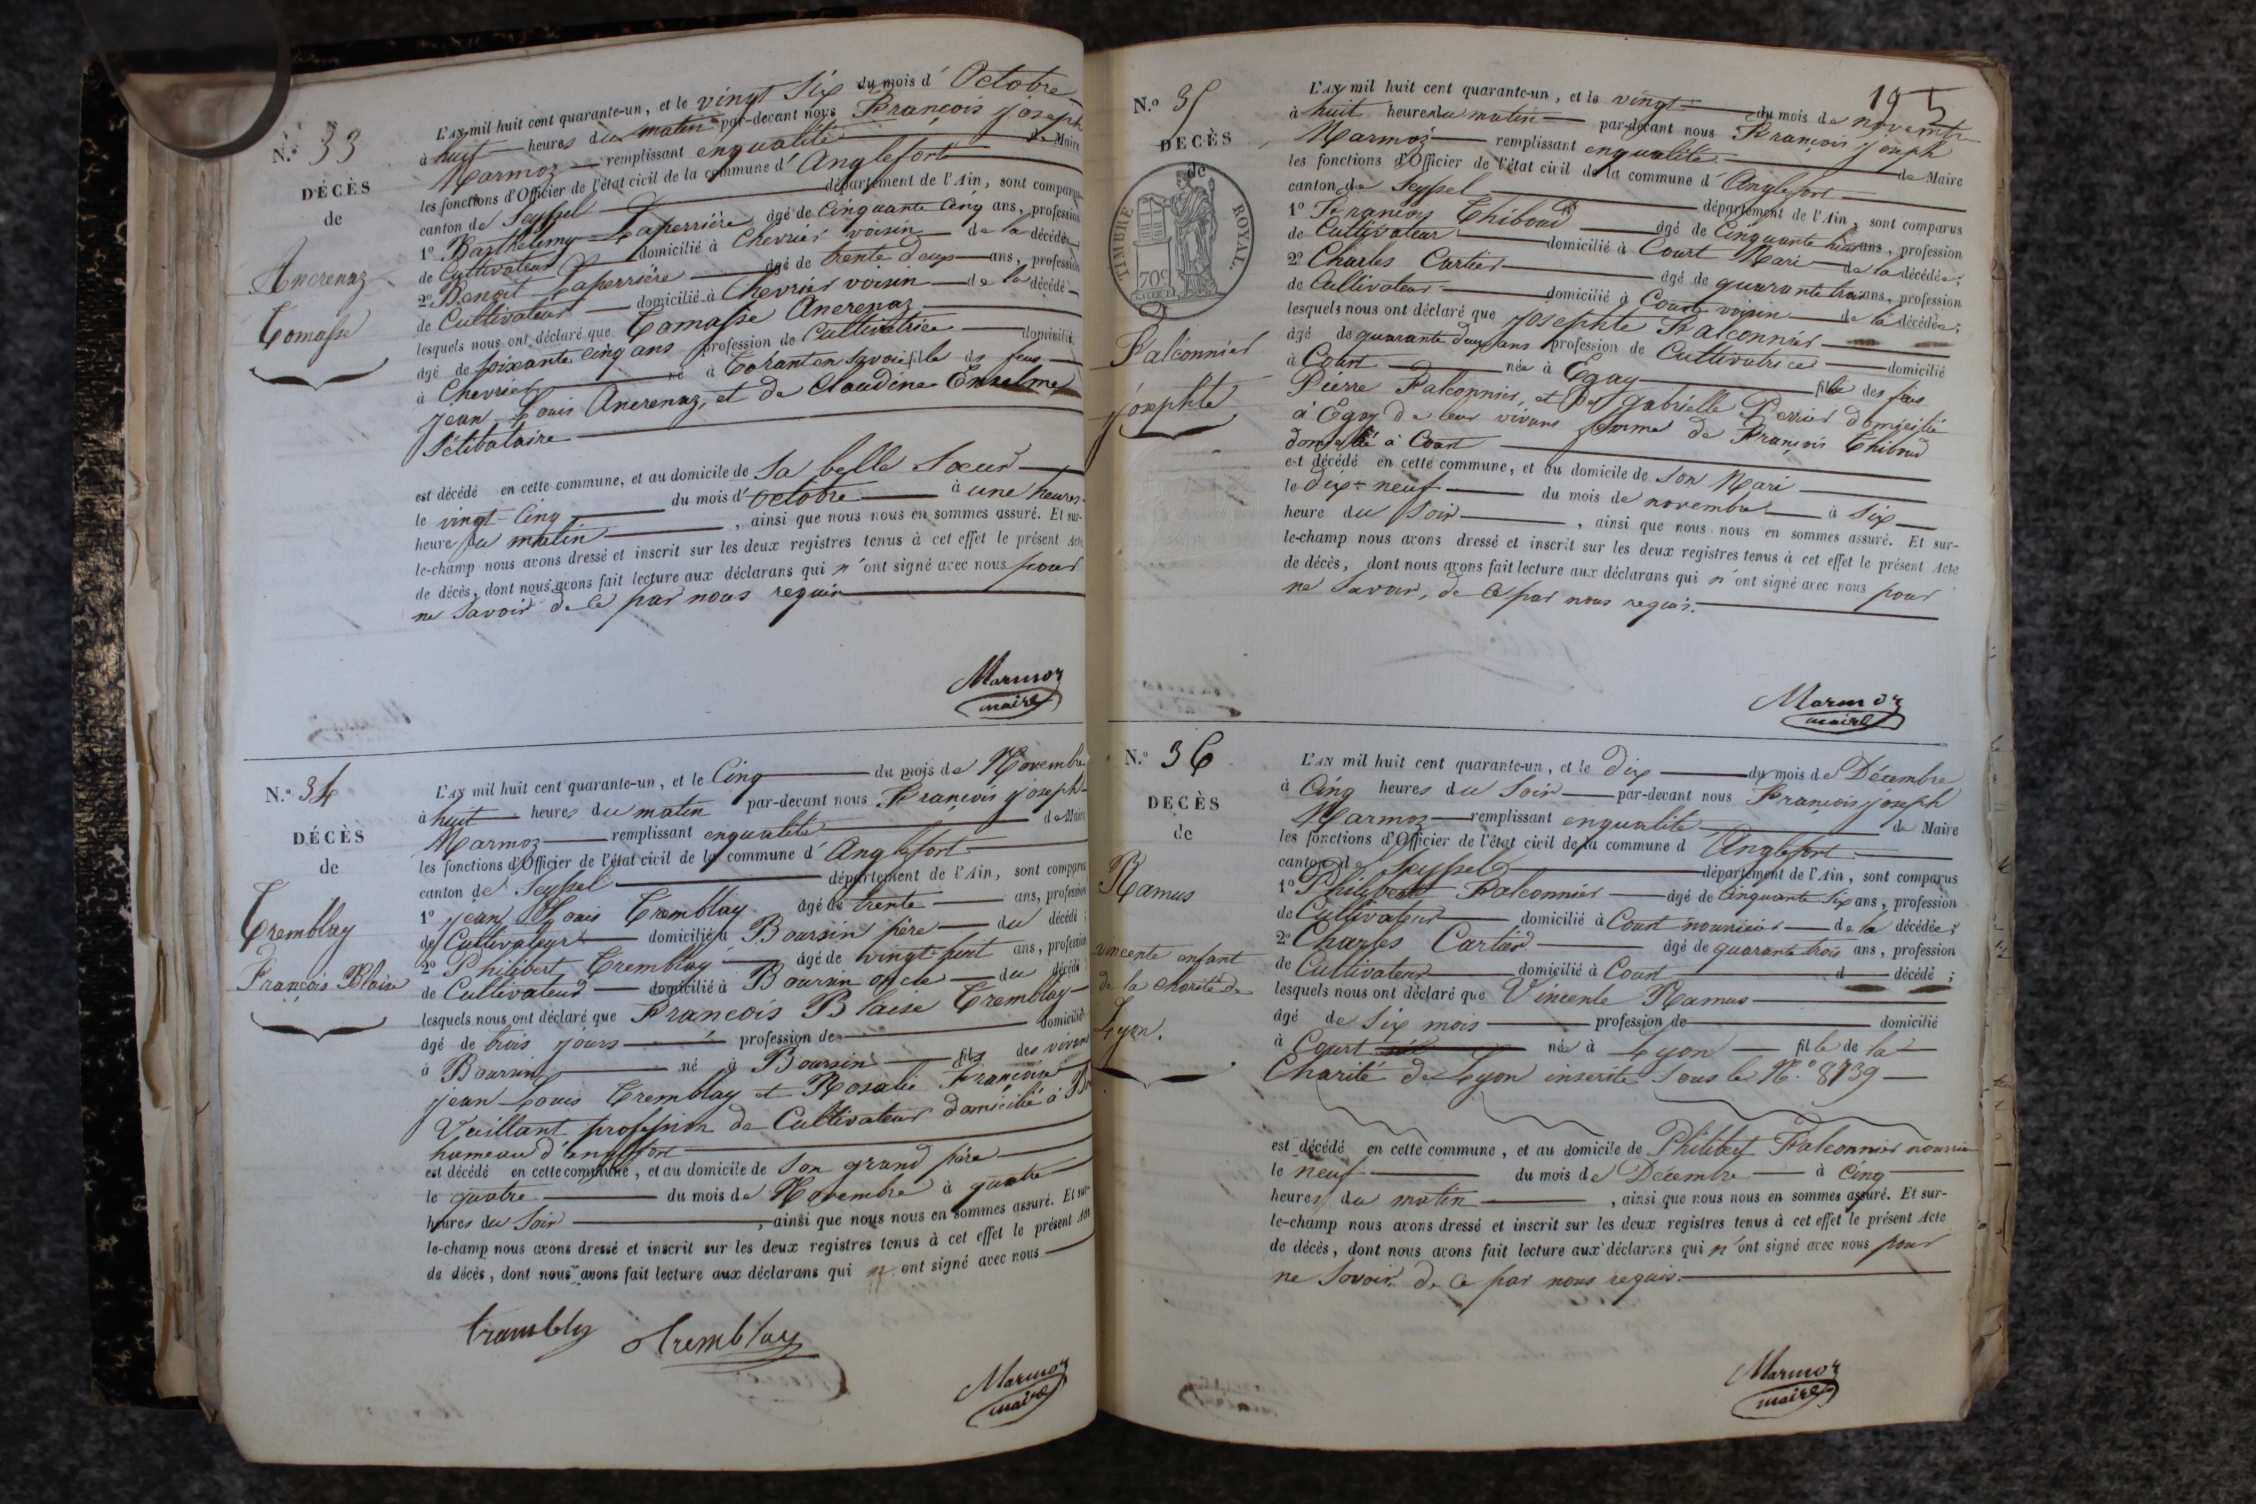 N.o 33
DÉCÈS
de
Ancrenaz
Tomasse
L'AN mil huit cent quarante-un, et le vingt Six du mois d' Octobre
à huit heures du matin par-devant nous François joseph
Marmoz remplissant enqualité de Maire
les fonctions d'Officier de l'état civil de la commune d' Anglefort
canton de Seyssel département de l'Ain, sont comparus
1o Barthelemy Laperrière âgé de Cinquante Cinq ans, profession
de Cultivateur domicilié à Chevrier voisin de la décédée
2o Benoit Laperrière âgé de trente deux ans, profession
de Cultivateur domicilié à Chevrier voisin de la décédé
lesquels nous ont déclaré que Tomasse Ancrenaz
âgé de Soixante Cinq ans profession de Cultivatrice domicilié
à Chevrier né à en Savoie fille de feu
jean Louis Ancrenaz, et de Claudine Enselme
Sélibataire
est décédé en cette commune, et au domicile de Sa belle Sœur
le vingt Cinq du mois d' octobre à une heure
heure du matin, ainsi que nous nous en sommes assuré. Et sur-
le-champ nous avons dressé et inscrit sur les deux registres tenus à cet effet le présent Acte
de décès, dont nous avons fait lecture aux déclarans qui n'ont signé avec nous pour
ne Savoir de Ce par nous requis
Marmoz
maire
N.o 34
DÉCÈS
de
Tremblay
François Blaise
L'AN mil huit cent quarante-un, et le Cinq du mois de Novembre
à huit heures du matin par-devant nous François joseph
Marmoz remplissant enqualité de Maire
les fonctions d'Officier de l'état civil de la commune d' Anglefort
canton de Seyssel département de l'Ain, sont comparus
1o jean Louis Tremblay âgé de trente ans, profession
de Cultivateur domicilié à Boursin père du décédé ;
2o Philibert Tremblay âgé de vingt huit ans, profession
de Cultivateur domicilié à Boursin oncle du décédé
lesquels nous ont déclaré que François Blaise Tremblay
âgé de trois jours profession de domicilié
à Boursin né à Boursin fils des vivans
jean Louis Tremblay et Rosalie Françoise
Vuillant profession de Cultivateur domicilié à
hameau d'anglefort
est décédé en cette commune, et au domicile de Son grand père
le quatre du mois de Novembre à quatre
heures du Soir, ainsi que nous nous en sommes assuré. Et sur-
le-champ nous avons dressé et inscrit sur les deux registres tenus à cet effet le présent Acte
de décès, dont nous avons fait lecture aux déclarans qui n ont signé avec nous
trembley tremblay
Marmoz
maire
195
N.o 35
DÉCÈS
de
TIMBRE ROYAL.
70c
Falconnier
josephte
L'AN mil huit cent quarante-un, et le vingt du mois de novembre
à huit heures du matin par-devant nous François joseph
Marmoz remplissant enqualité de Maire
les fonctions d'Officier de l'état civil de la commune d' Anglefort
canton de Seyssel département de l'Ain, sont comparus
1o François Thiboud âgé de Cinquante huit ans, profession
de Cultivateur domicilié à Court Mari de la décédée ;
2o Charles Cartier âgé de quarante trois ans, profession
de Cultivateur domicilié à Court voisin de la décédée ;
lesquels nous ont déclaré que josephte Falconnier
âgé de quarante deux ans profession de Cultivatrice domicilié
à Court née à Egay fille des feus
Pierre Falconnier, et de gabrielle Perrier domicilié
à Egay de leur vivant femme de François Thiboud
domicilié à Court
est décédé en cette commune, et au domicile de son Mari
le dix-neuf du mois de novembre à six
heure du Soir, ainsi que nous nous en sommes assuré. Et sur-
le-champ nous avons dressé et inscrit sur les deux registres tenus à cet effet le présent Acte
de décès, dont nous avons fait lecture aux déclarans qui n'ont signé avec nous pour
ne Savoir, de Ce par nous requis.
Marmoz
maire
N.o 36
DÉCÈS
de
Ramus
vincente enfant
de la charité de
Lyon.
L'AN mil huit cent quarante-un, et le Dix du mois de Décembre
à Cinq heures du Soir par-devant nous François joseph
Marmoz remplissant enqualité de Maire
les fonctions d'Officier de l'état civil de la commune d Anglefort
canton de Seyssel département de l'Ain, sont comparus
1o Philibert Falconnier âgé de Cinquante Six ans, profession
de Cultivateur domicilié à Court nouricier de la décédée ;
2o Charles Cartier âgé de quarante trois ans, profession
de Cultivateur domicilié à Court d décédé ;
lesquels nous ont déclaré que Vincente Ramus
âgé de Six mois profession de domicilié
à Court née à Lyon fille de la
Charité de Lyon inscrite Sous le N.o 8739
est décédé en cette commune, et au domicile de Philibert Falconnier
le neuf du mois de Décembre à Cinq
heures du matin, ainsi que nous nous en sommes assuré. Et sur-
le-champ nous avons dressé et inscrit sur les deux registres tenus à cet effet le présent Acte
de décès, dont nous avons fait lecture aux déclarans qui n'ont signé avec nous pour
ne Savoir de Ce par nous requis.
Marmoz
maire